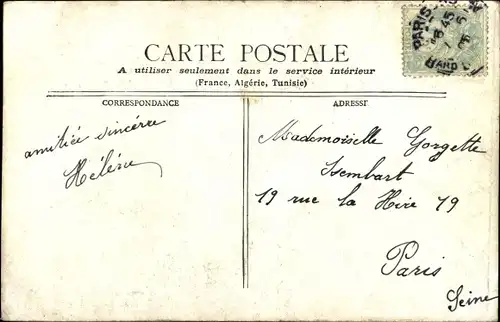 CARTE POSTALE
A utiliser seulement dans le service intérieur
(France, Algérie, Tunisie)
CORRESPONDANCE
ADRESSE
amitiée sincérre
Hélène
Mademoiselle Gorgette
Isembart
19 rue la Hire 19
Paris
Seine
PARIS